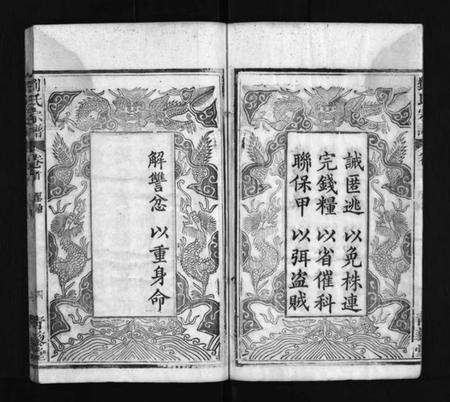 誠匿逃 以免株連
完錢糧 以省催科
聯保甲 以弭盜賊
解讐忿 以重身命
劉氏宗譜
卷首